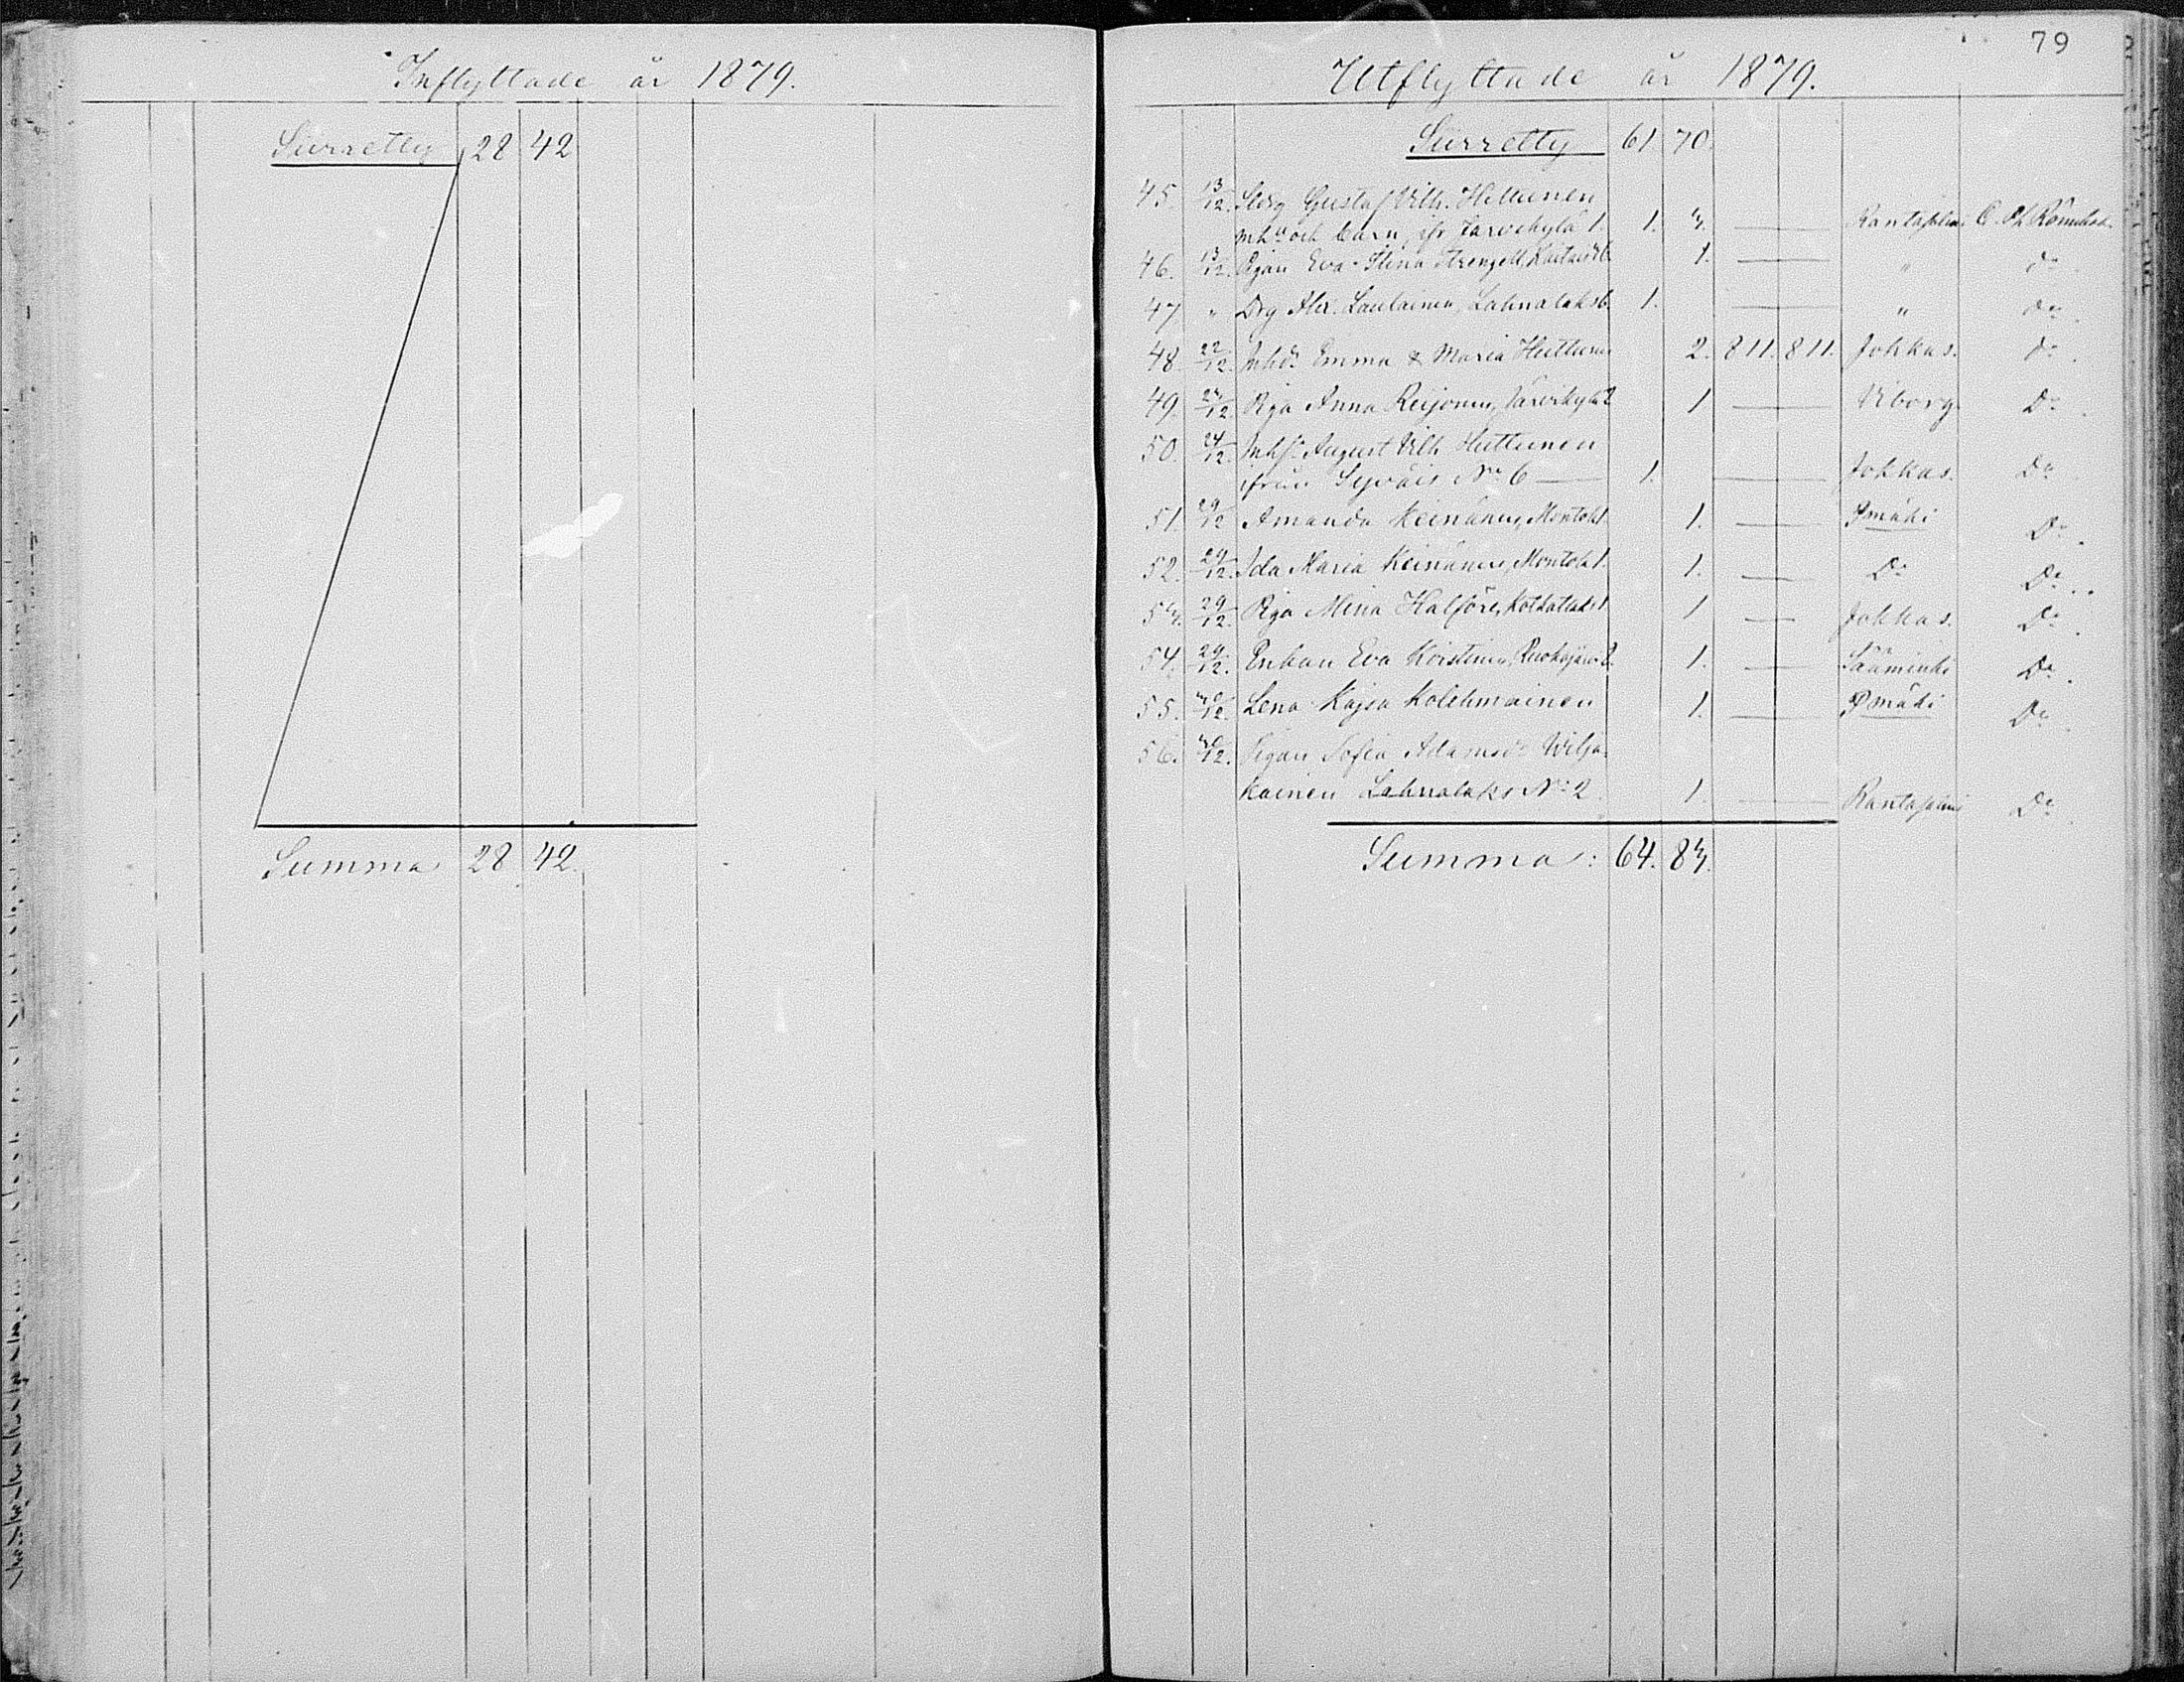 Inflyttade år 1879.
Siirretty 28 42
Summa 28 42.
79
Utflyttade år 1879.
Siirretty 61 70.
45. 13/12. Gustaf Vilh. Huttunen
och barn, ifr Tarvikylä 1. 1. 3. — Rantasalmi C. Ph.
46. 13/12. Pigan Eva Stina Strengell, 6. 1. — " do.
47 " Drg Alex. Laulainen, Lahnalaks 6. 1. — " do.
48. 22/12. Inhdr Emma & Maria Huttunen 2. 811. 811. Jokkas. do.
49. 23/12. Piga Anna Reijonen, 2 1 — Viborg Do.
50. 24/12. Inhs. August Vilh. Huttunen
ifrån Syväis No 6 — 1. — Jokkas. Do
51. 29/12 Amanda Keinänen, Montola 1. 1. — Pmäki Do.
52. 29/12. Ida Maria Keinänen, Montola 1. 1. — Do Do.
53. 29/12. Piga Mina Halfors, Kotkatlaks 1. 1 — Jokkas. Do.
54. 29/12. Enkan Eva Koistinen, Ruokojärvi 2. 1. — Sääminki Do.
55. 30/12. Lena Kajsa Kolehmainen 1. — Pmäki Do.
56. 30/12. Pigan Sofia Adamsdr Wilja-
kainen Lahnalaks No 2. 1. — Rantasalmi Do.
Summa: 64. 83.